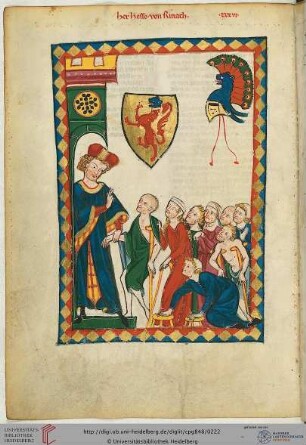 her Hesso von Rinach.
UNIVERSITÄTS-
BIBLIOTHEK
HEIDELBERG
http://digi.ub.uni-heidelberg.de/diglit/cpg848/0222
© Universitätsbibliothek Heidelberg